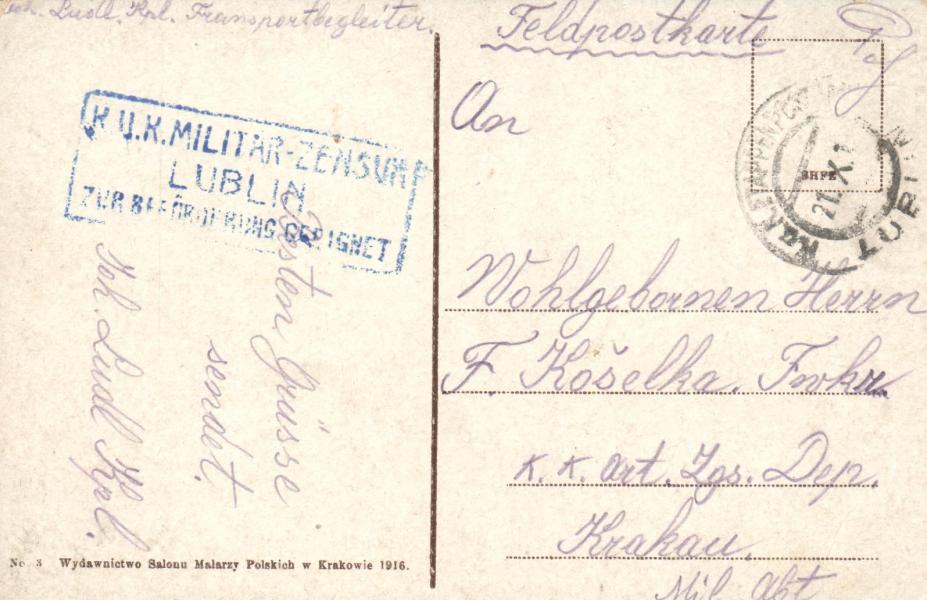 Joh. Ludl, Kpl. Transportbegleiter.
K.U.K. MILITÄR-ZENSUR
LUBLIN
ZUR BEFÖRDERUNG GEEIGNET
Besten Grüsse
sendet.
Joh. Ludl Kpl.
No. 3 Wydawnictwo Salonu Malarzy Polskich w Krakowie 1916.
Feldpostkarte
An
K.u.K. ETAPPENPOST
LUBLIN
21. X. 1
Wohlgebornen Herrn
F. Košelka.
K. K. Art. Zgs. Dep.
Krakau.
Mil. Abt